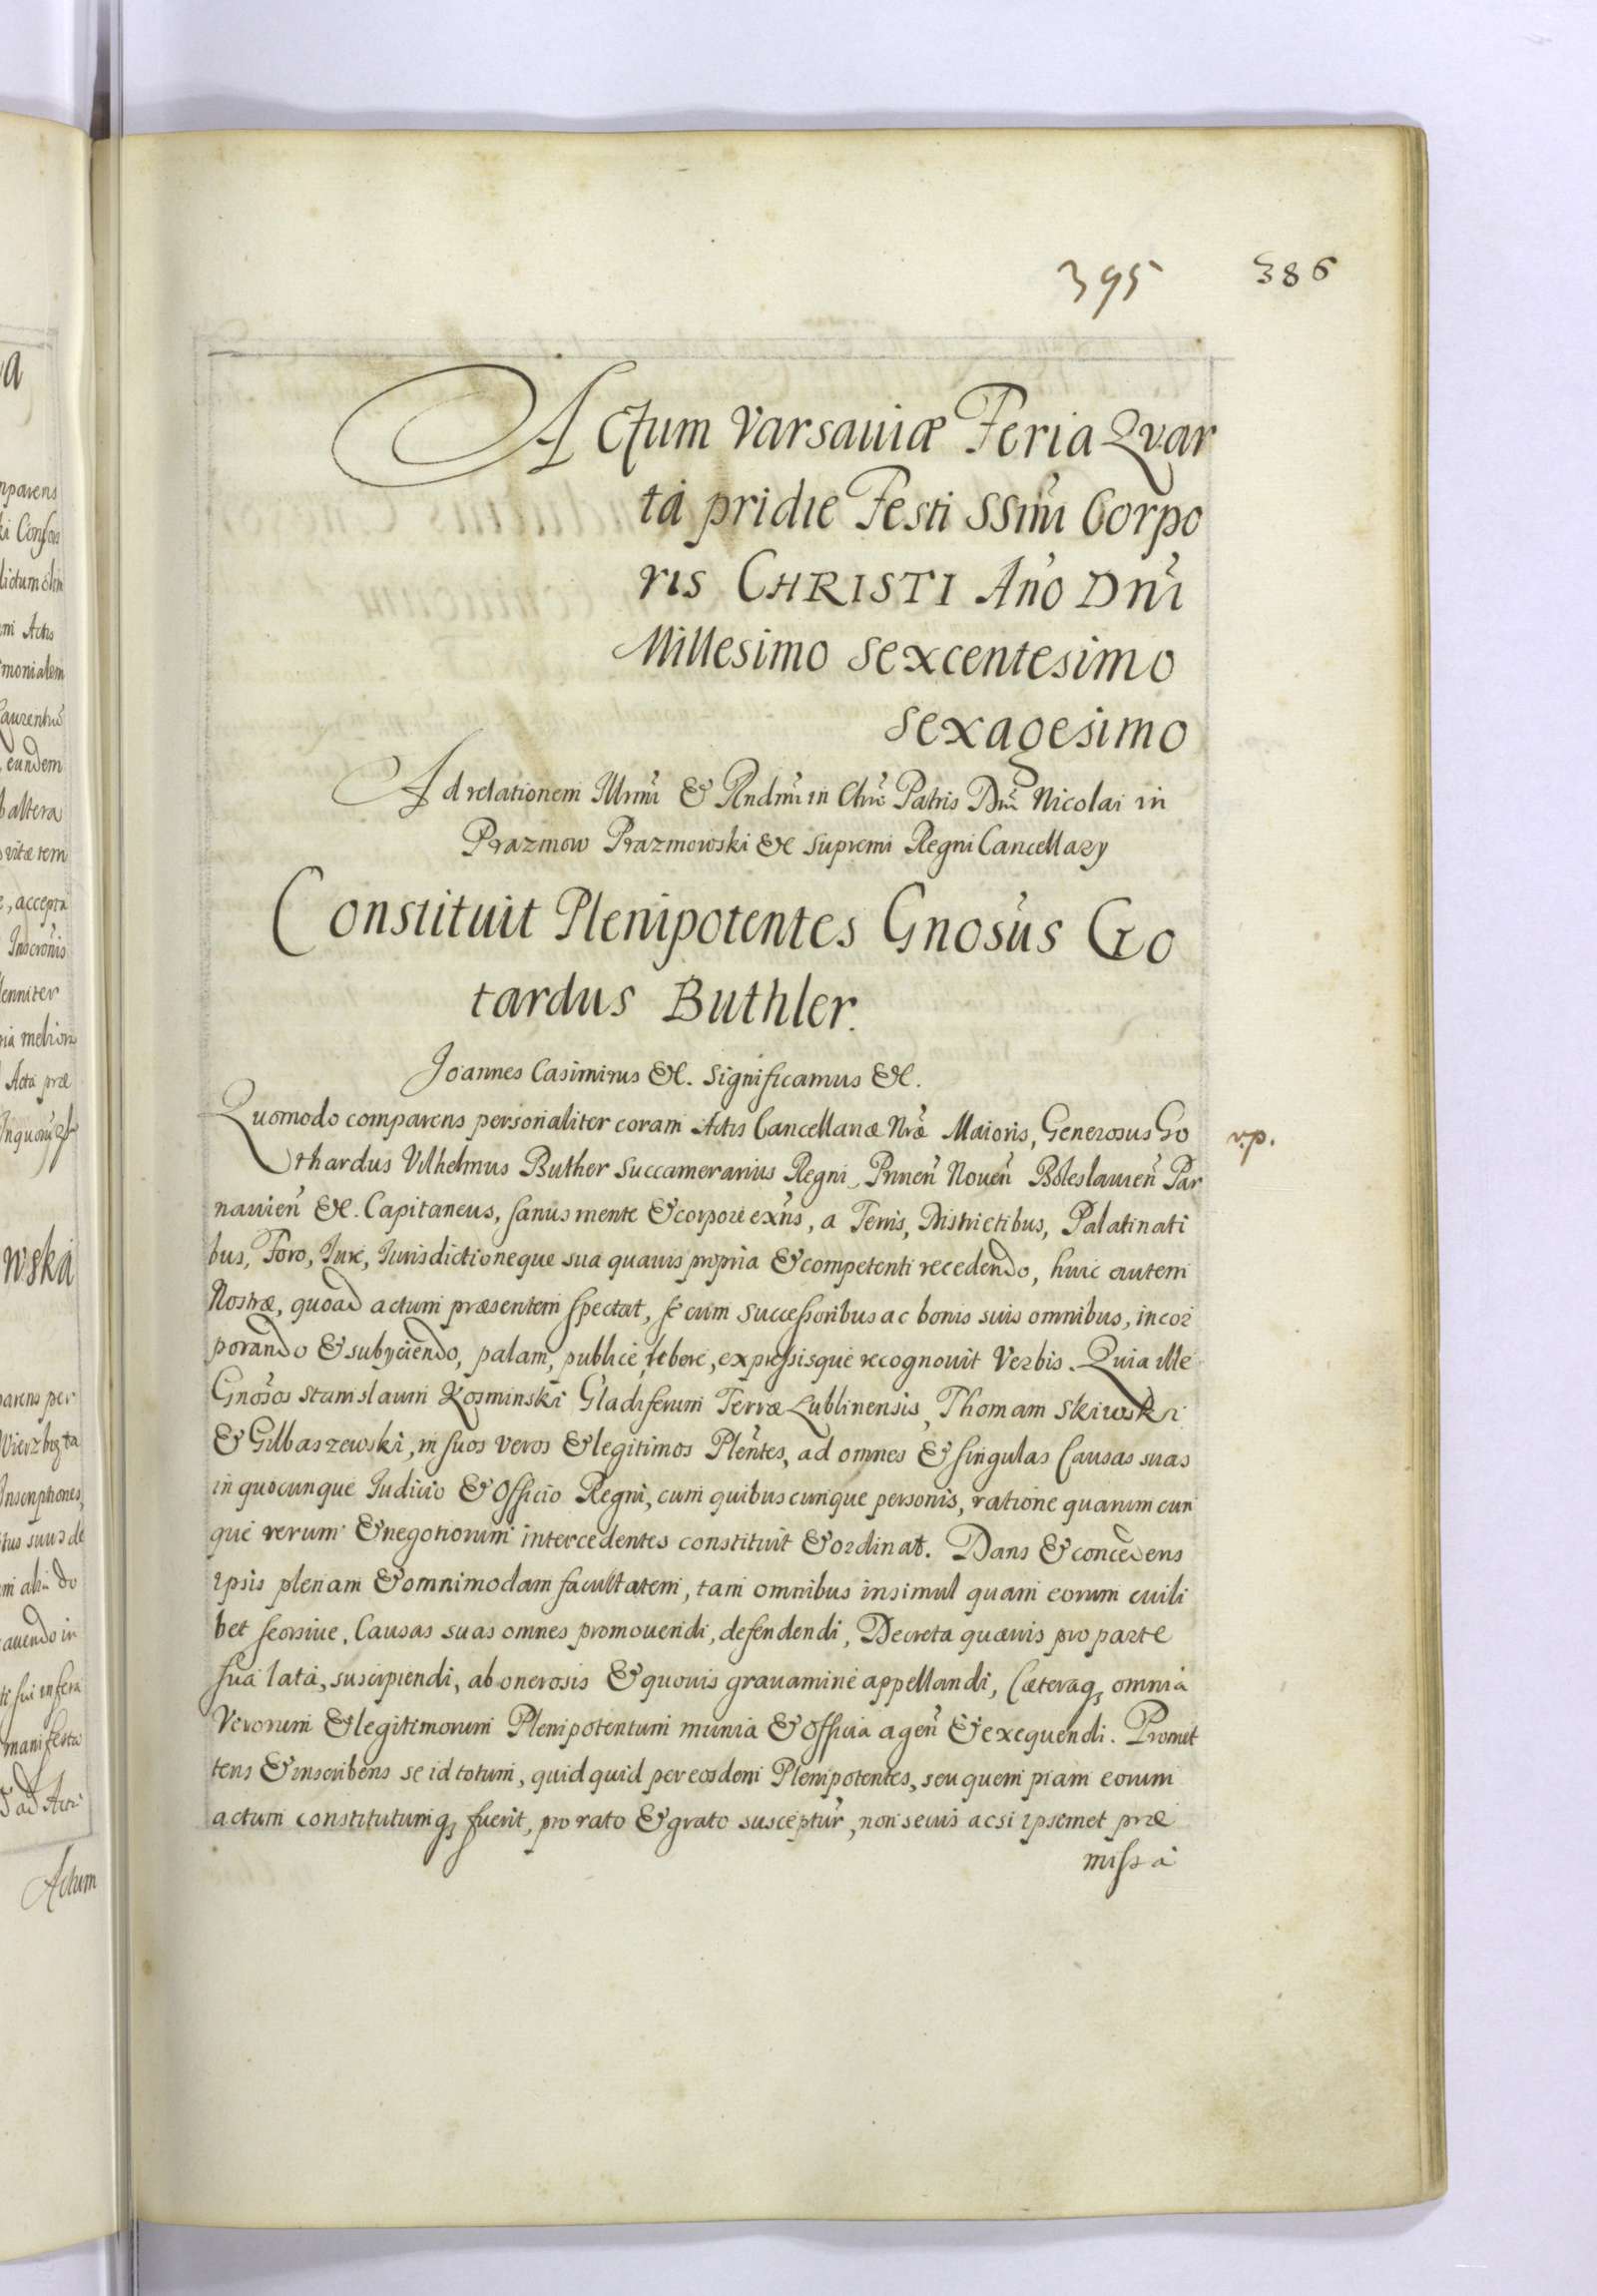 395 386
Actum Varsaviæ Feria Qvar
ta pridie Festi SSmi Corpo
ris CHRISTI Año Dni
Millesimo Sexcentesimo
Sexagesimo
Ad relationem Illmi & Rndmi in Chro Patris Dni Nicolai in
Prazmow Prazmowski &c Supremi Regni Cancellary
Constituit Plenipotentes Gnosus Go
tardus Buthler.
Joannes Casimirus &c. Significamus &c.
Quomodo comparens personaliter coram Actis Cancellariæ Nræ Maioris, Generosus Go
thardus Vilhelmus Buther Succamerarius Regni, Prinen̄ Noven̄ Boleslavien̄ Par
navien̄ &c. Capitaneus, sanus mente & corpore exns, a Terris, Districtibus, Palatinati
bus, Foro, Iure, Iurisdictioneque sua quavis propria & competenti recedendo, huic autem
Nostræ, quoad actum præsentem spectat, se cum successoribus ac bonis suis omnibus, incor
porando & subyciendo, palam, publice, libere, expressisque recognovit Verbis. Quia ille
Gnosos Stanislaum Kozminski Gladiferum Terræ Lublinensis, Thomam Skiwski
& Gilbaszewski, in suos veros & legitimos Plentes, ad omnes & singulas Causas suas
in quocunque Iudicio & Officio Regni, cum quibuscunque personis, ratione quarumcun
que rerum & negotiorum intercedentes constituit & ordinat. Dans & concedens
ipsis plenam & omnimodam facultatem, tam omnibus insimul quam eorum cuili
bet seorsive, Causas suas omnes promovendi, defendendi, Decreta quævis pro parte
sua lata, suscipiendi, ab onerosis & quovis gravamine appellandi, Cæteraq; omnia
Verorum & legitimorum Plenipotentum munia & Officia agen̄ & exequendi. Promit
tens & inscribens se id totum, quidquid per eosdem Plenipotentes, seu quempiam eorum
actum constitutumq; fuerit, pro rato & grato susceptur, non secus acsi ipsemet præ
missa
v.p.
Actum